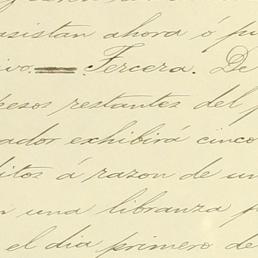 asistan ahora ó pu
ivo. Tercera. De
pesos restantes del p
ador exhibirá cinco
ditos á razon de un
n una libranza p
el dia primero de